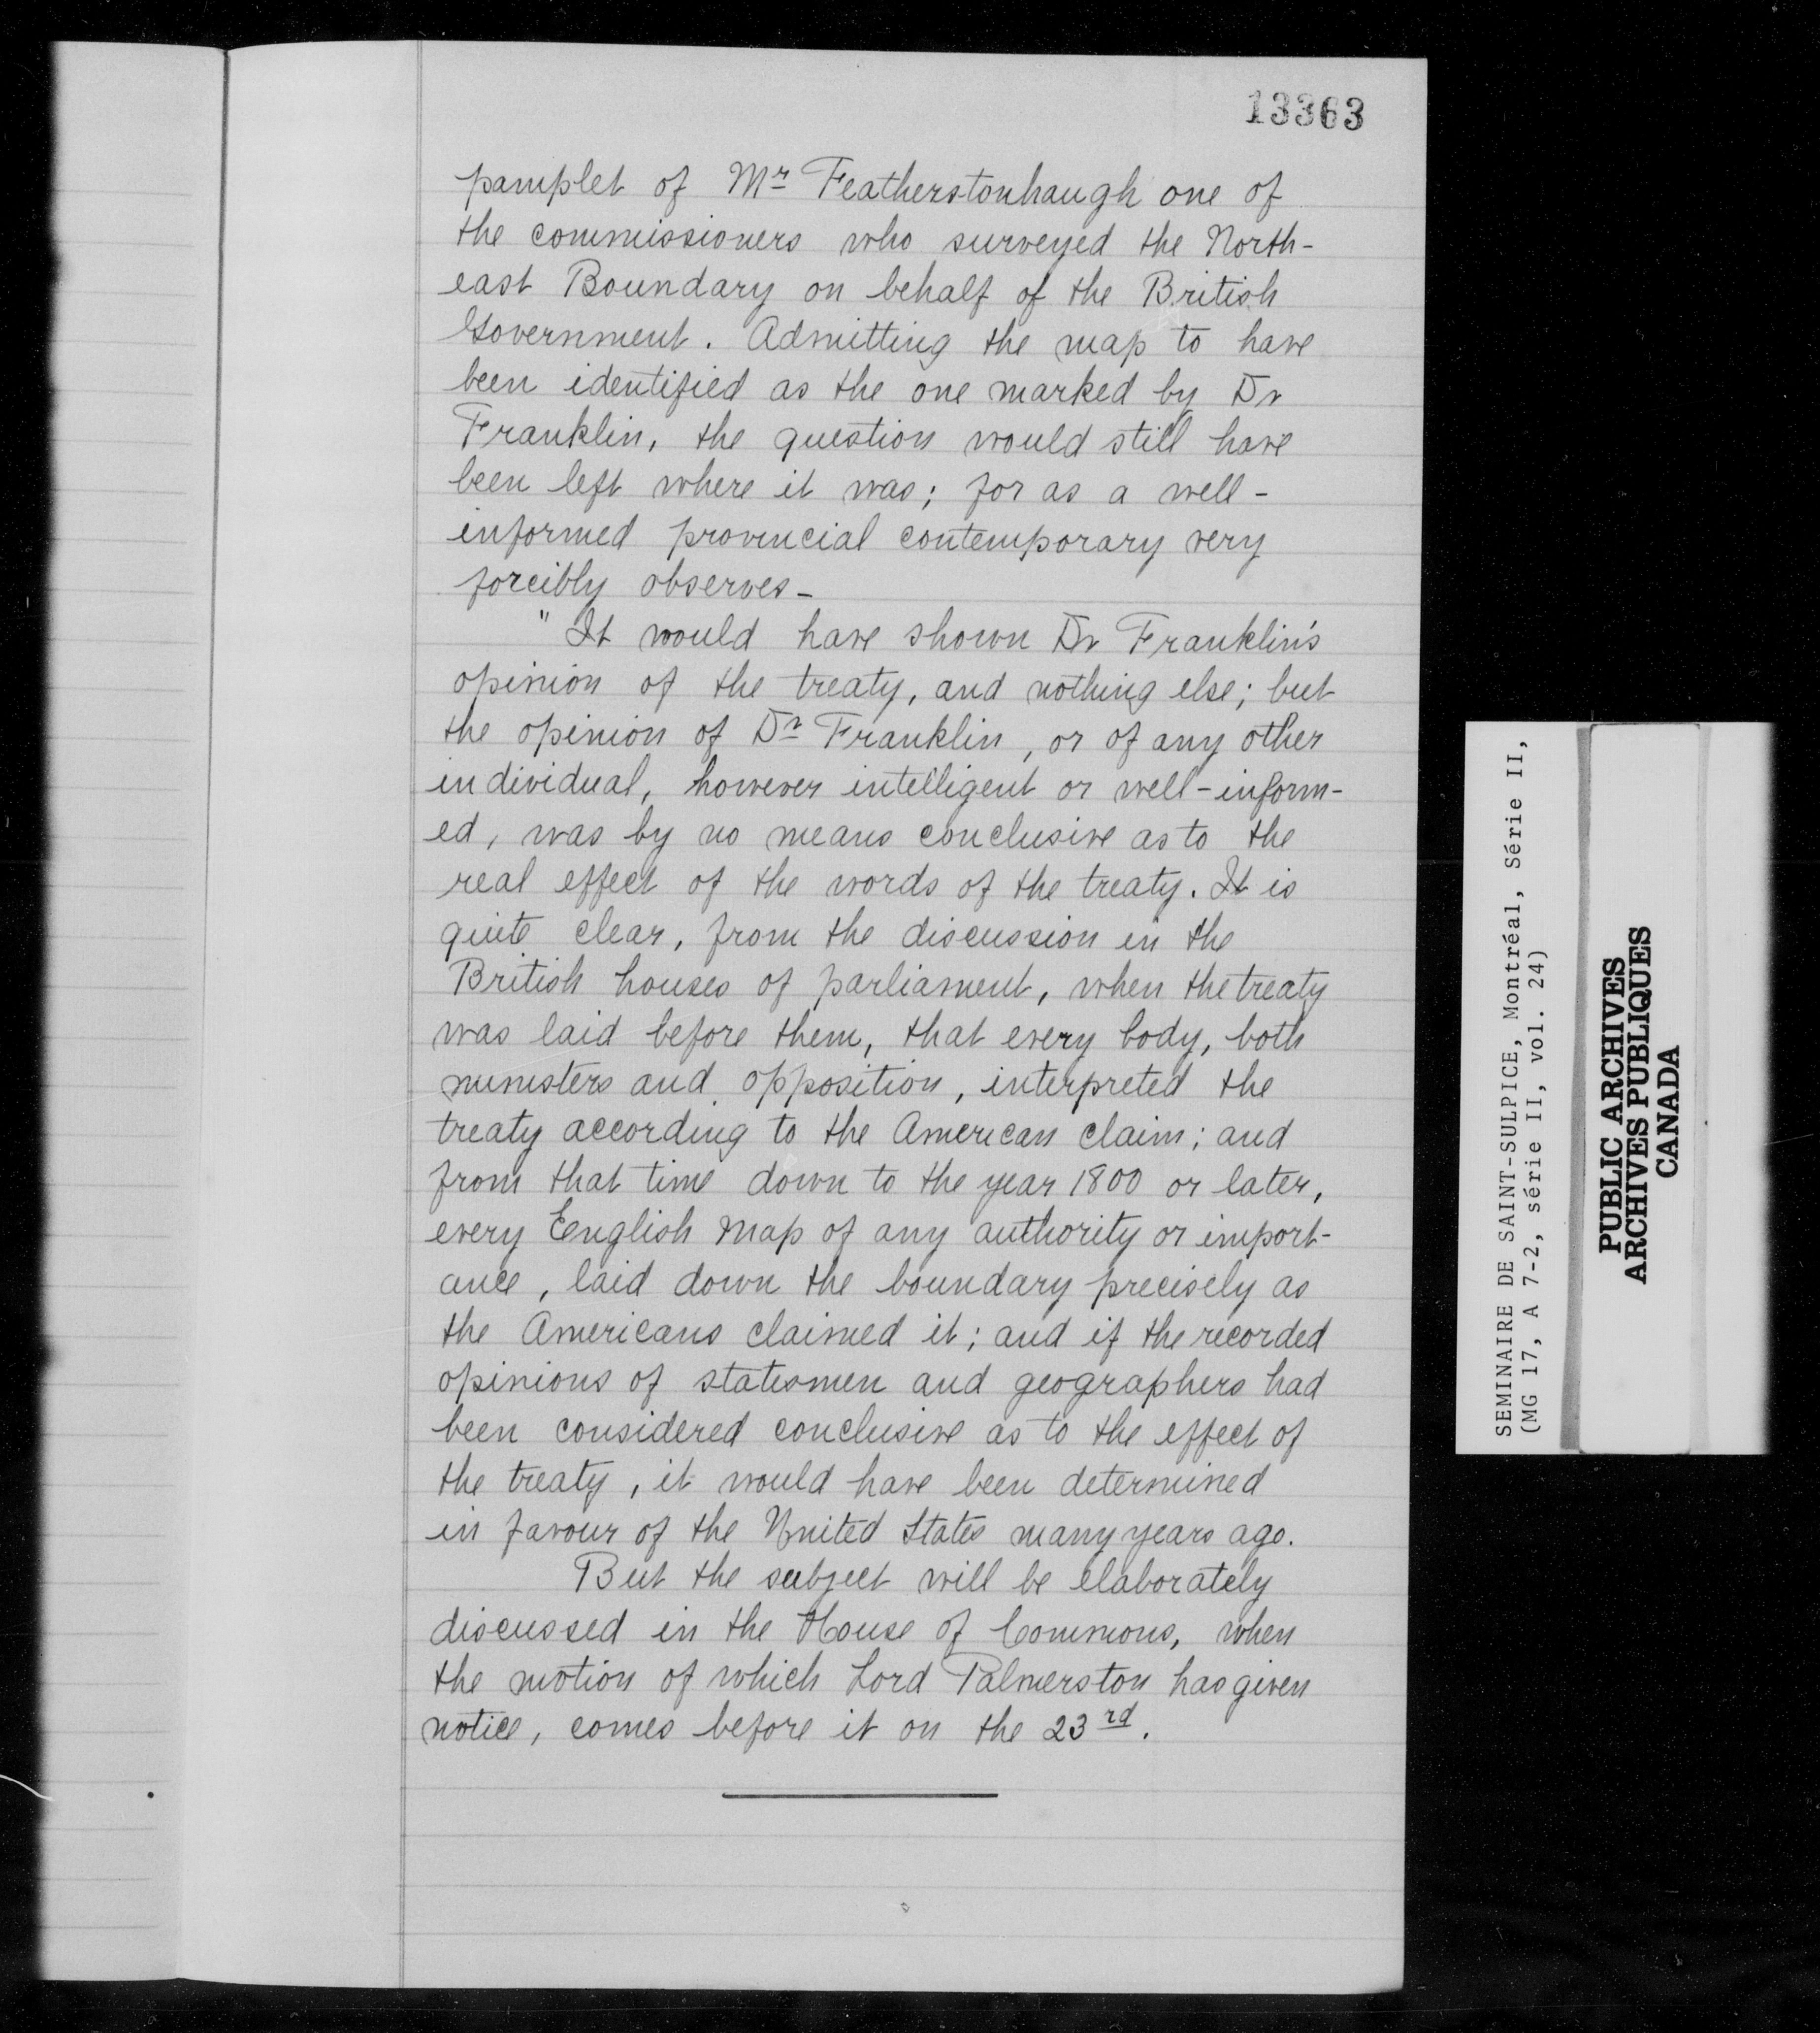 13363
pamplet of Mr Featherstonhaugh one of
the commissioners who surveyed the North-
east Boundary on behalf of the British
Government. Admitting the map to have
been identified as the one marked by Dr
Franklin, the question would still have
been left where it was; for as a well-
informed provincial contemporary very
forcibly observes-
" It would have shown Dr Franklin's
opinion of the treaty, and nothing else; but
the opinion of Dr Franklin, or of any other
individual, however intelligent or well-inform-
ed, was by no means conclusive as to the
real effect of the words of the treaty. It is
quite clear, from the discussion in the
British houses of parliament, when the treaty
was laid before them, that every body, both
ministers and opposition, interpreted the
treaty according to the American claim; and
from that time down to the year 1800 or later,
every English map of any authority or import-
ance, laid down the boundary precisely as
the Americans claimed it; and if the recorded
opinions of statesmen and geographers had
been considered conclusive as to the effect of
the treaty, it would have been determined
in favour of the United States many years ago.
But the subject will be elaborately
discussed in the House of Commons, when
the motion of which Lord Palmerston has given
notice, comes before it on the 23rd.
SEMINAIRE DE SAINT-SULPICE, Montréal, Série II,
(MG 17, A 7-2, série II, vol. 24)
PUBLIC ARCHIVES
ARCHIVES PUBLIQUES
CANADA